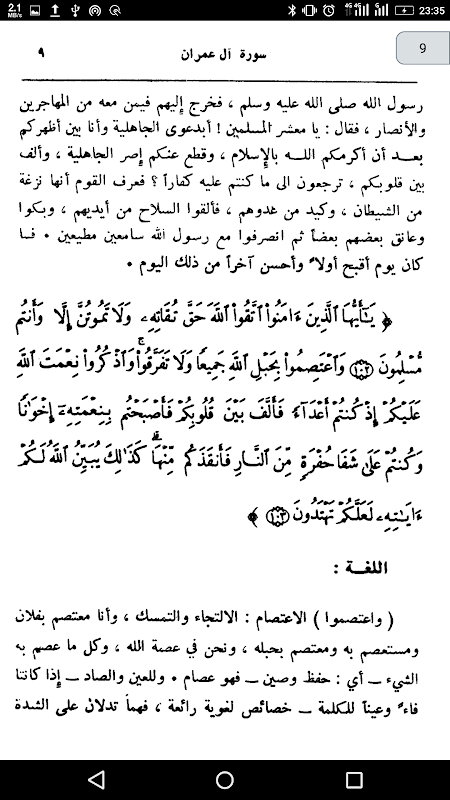 2.1 MB/s 4G 4G 23:35
9
سورة آل عمران ٩
رسول الله صلى الله عليه وسلم ، فخرج إليهم فيمن معه من المهاجرين
والأنصار ، فقال : يا معشر المسلمين ! أبدعوى الجاهلية وأنا بين أظهركم
بعد أن أكرمكم الله بالإسلام ، وقطع عنكم إصر الجاهلية ، وألف
بين قلوبكم ، ترجعون الى ما كنتم عليه كفاراً ؟ فعرف القوم أنها نزغة
من الشيطان ، وكيد من عدوهم ، فألقوا السلاح من أيديهم ، وبكوا
وعانق بعضهم بعضاً ثم انصرفوا مع رسول الله سامعين مطيعين • فما
كان يوم أقبح أولاً وأحسن آخراً من ذلك اليوم •
﴿ يَـٰٓأَيُّهَا ٱلَّذِينَ ءَامَنُوا۟ ٱتَّقُوا۟ ٱللَّهَ حَقَّ تُقَاتِهِۦ وَلَا تَمُوتُنَّ إِلَّا وَأَنتُم
مُّسْلِمُونَ ١٠٢ وَٱعْتَصِمُوا۟ بِحَبْلِ ٱللَّهِ جَمِيعًا وَلَا تَفَرَّقُوا۟ۚ وَٱذْكُرُوا۟ نِعْمَتَ ٱللَّهِ
عَلَيْكُمْ إِذْ كُنتُمْ أَعْدَآءً فَأَلَّفَ بَيْنَ قُلُوبِكُمْ فَأَصْبَحْتُم بِنِعْمَتِهِۦٓ إِخْوَٰنًا
وَكُنتُمْ عَلَىٰ شَفَا حُفْرَةٍ مِّنَ ٱلنَّارِ فَأَنقَذَكُم مِّنْهَاۗ كَذَٰلِكَ يُبَيِّنُ ٱللَّهُ لَكُمْ
ءَايَـٰتِهِۦ لَعَلَّكُمْ تَهْتَدُونَ ١٠٣ ﴾
اللغة :
( واعتصموا ) الاعتصام : الالتجاء والتمسك ، وأنا معتصم بفلان
ومستعصم به ومعتصم بحبله ، ونحن في عصمة الله ، وكل ما عصم به
الشيء ــ أي : حفظ وصين ــ فهو عصام • وللعين والصاد ــ إذا كانتا
فاءً وعيناً للكلمة ــ خصائص لغوية رائعة ، فهما تدلان على الشدة